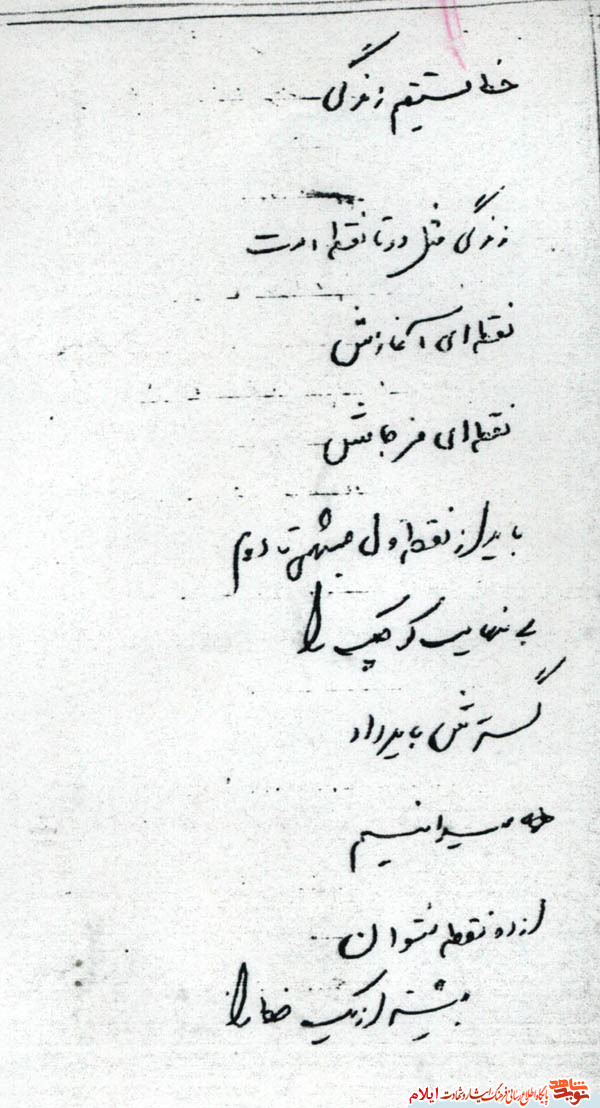 خط مستقیم زندگی
زندگی مثل دو تا نقطه است
نقطه ای آغازش
نقطه ای فرجامش
باید از نقطه اول تا دوم
بی نهایت کوچک را
گسترش باید داد
میدانیم
از دو نقطه نتوان
بیشتر از یک خط را
نوید شاهد پایگاه اطلاع رسانی فرهنگ ایثار و شهادت ایلام